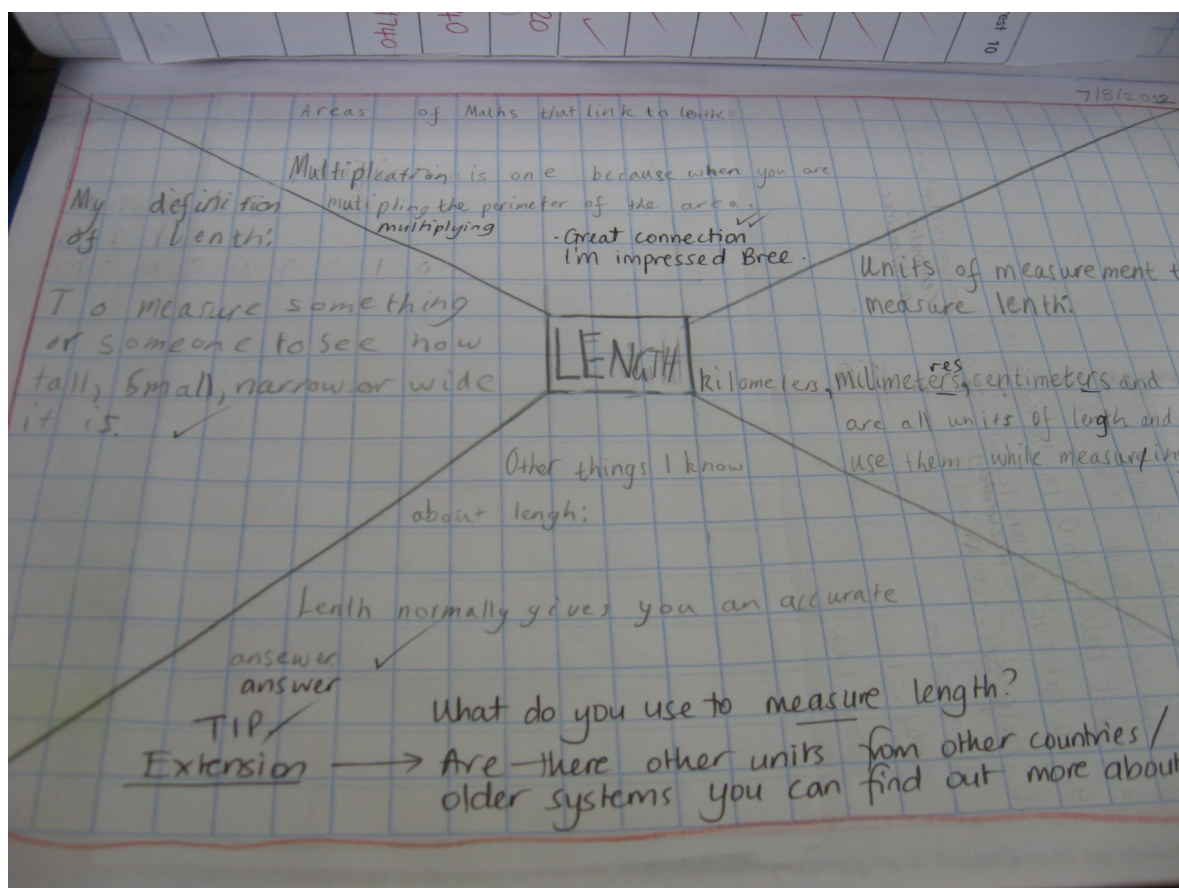 test 10
20
40
1740
7/8/2012
Areas of Maths that link to lenth.
Multiplication is one because when you are
mutipling the perimeter of the area.
multiplying
- Great connection
I'm impressed Bree.
My definition
of lenth:
To measure something
or someone to see how
tall, small, narrow or wide
it is.
LENGTH
Units of measurement t
measure lenth:
res
kilometers, milimeters, centimeters and
are all units of length and
use them while measuring
Other things I know
about lengh:
Lenth normally gives you an accurate
ansewer
answer
TIP/
Extension → What do you use to measure length?
Are there other units from other countries/
older systems you can find out more about